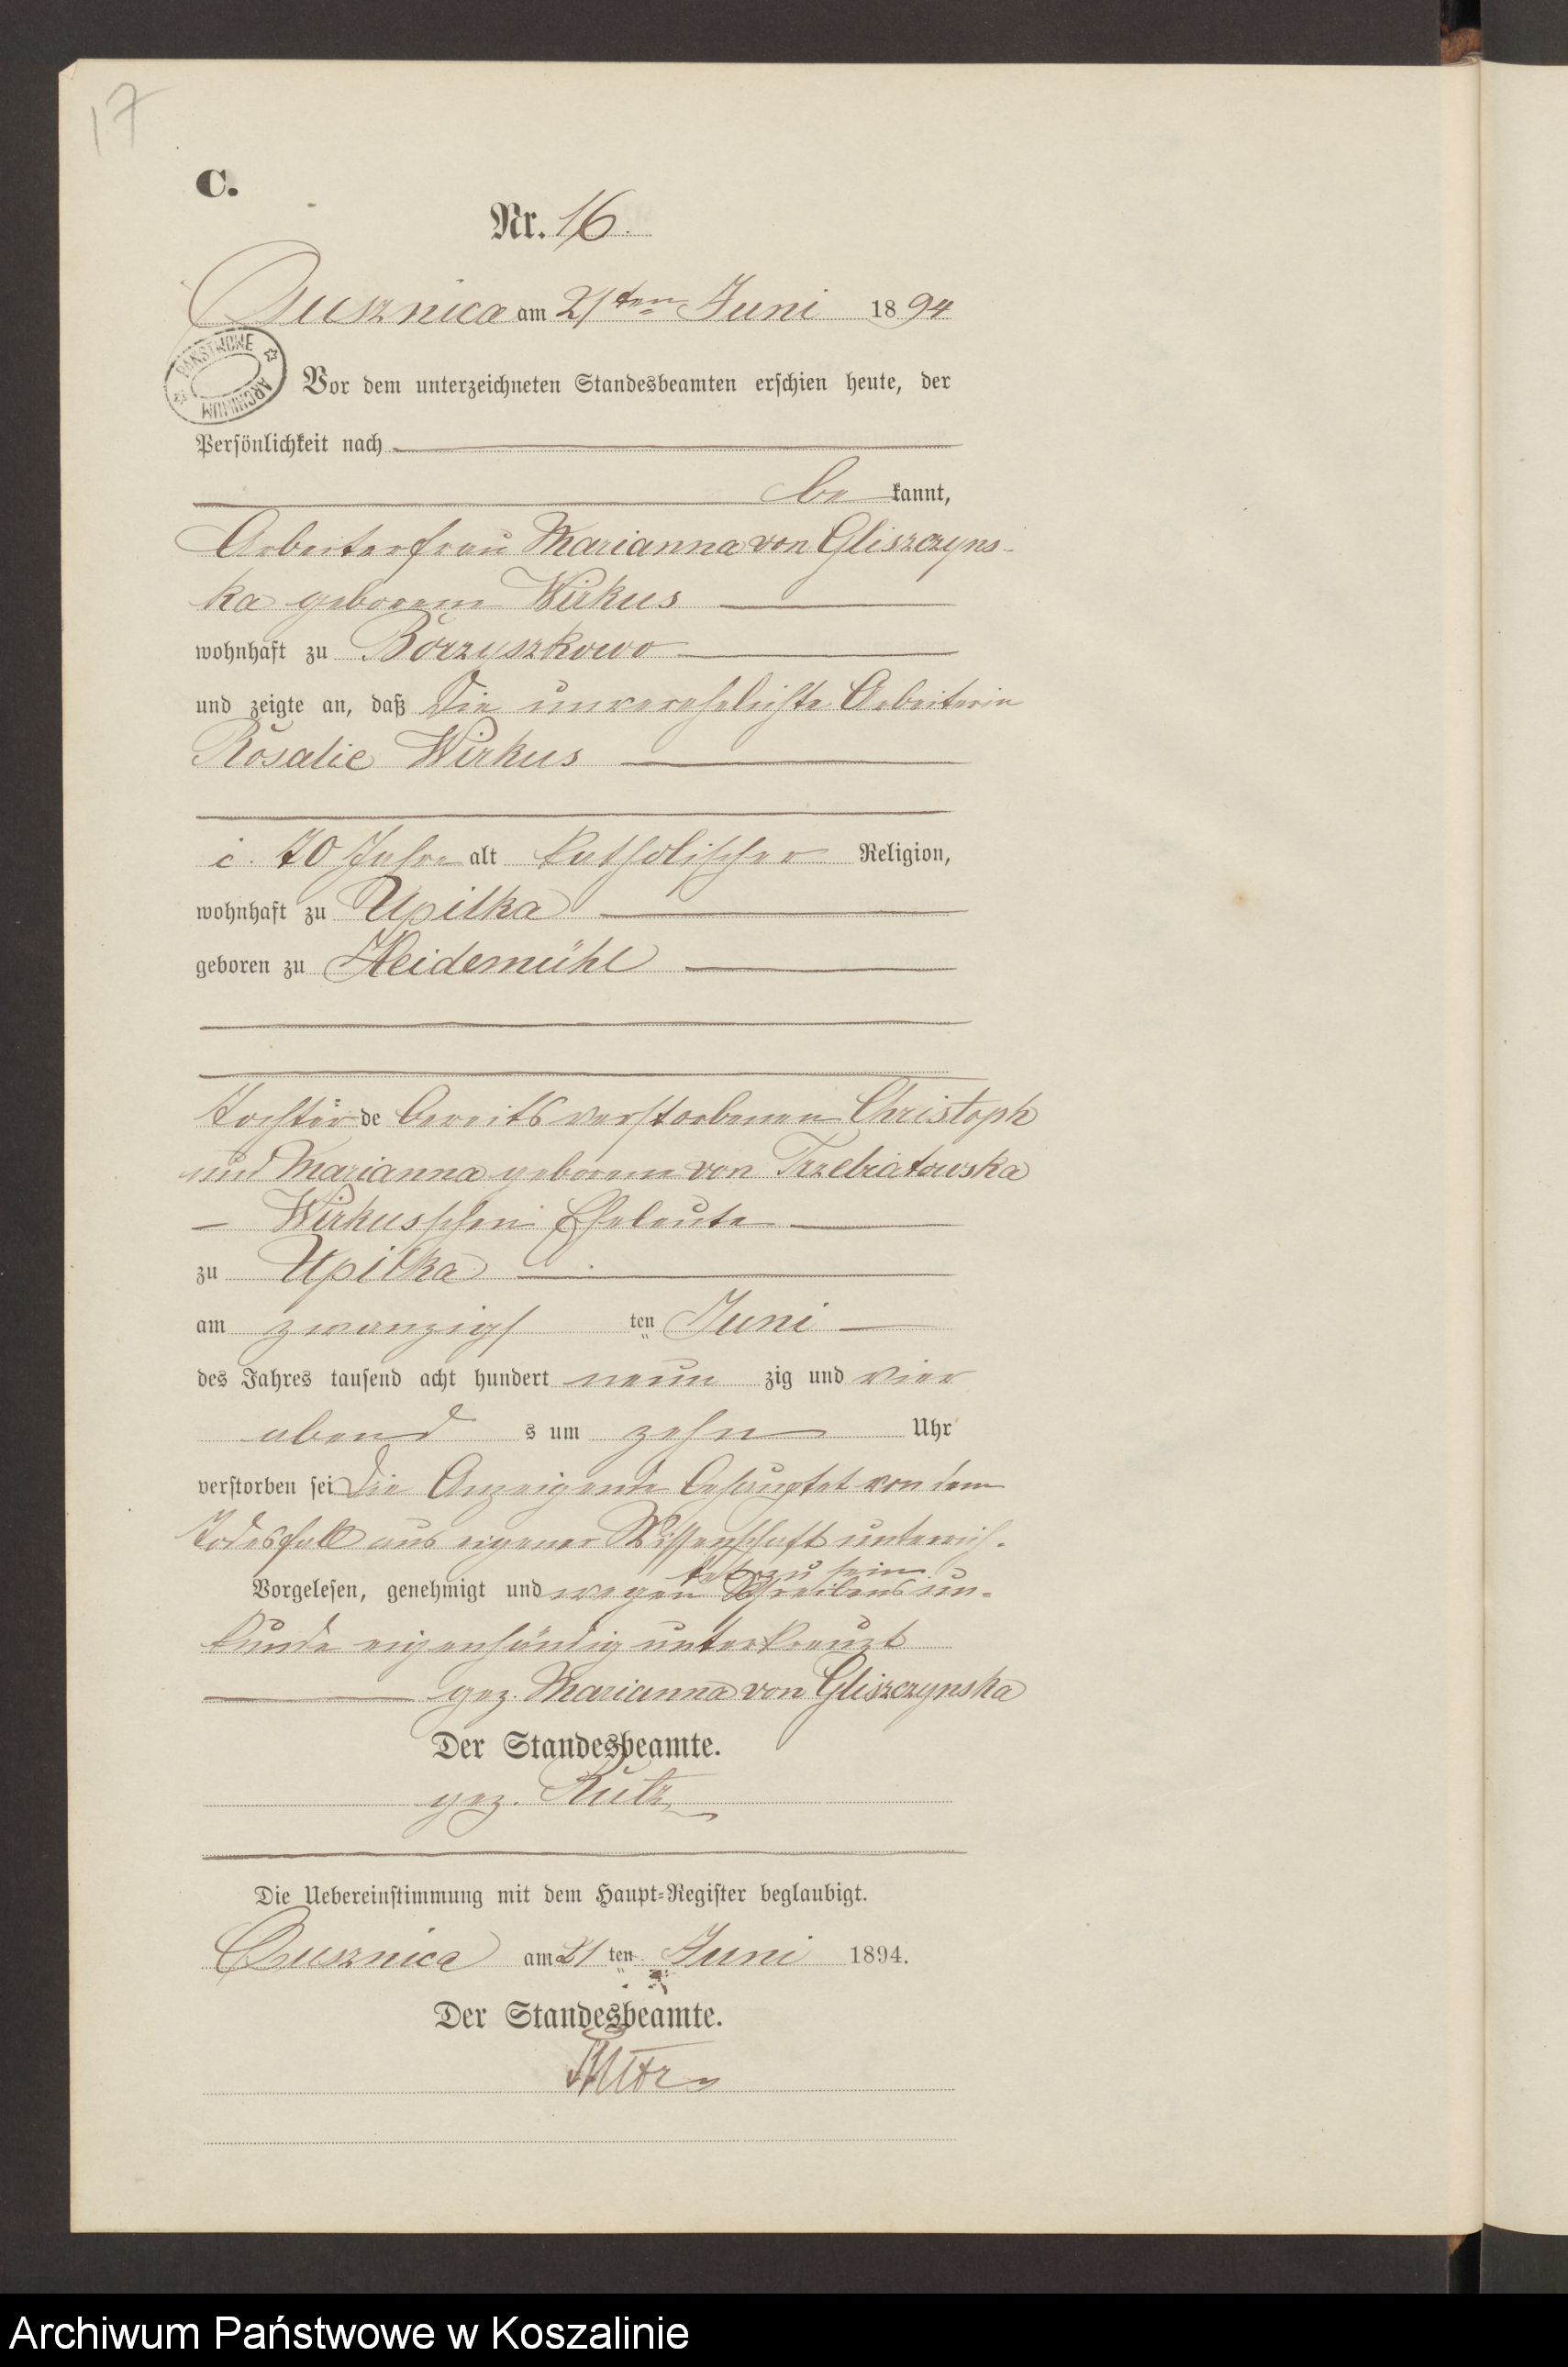 17
C.
Nr. 16.
Ousznica am 21ten Juni 1894
PAŃSTWOWE ARCHIWUM
Vor dem unterzeichneten Standesbeamten erschien heute, der
Persönlichkeit nach
be kannt,
Arbeiterfrau Marianna von Gliszczyns-
ka geborene Wirkus
wohnhaft zu Borzyszkowo
und zeigte an, daß die unverehelichte Arbeiterin
Rosalie Wirkus
c. 70 Jahre alt katholischer Religion,
wohnhaft zu Upilka
geboren zu Heidemühl
Tochter de bereits verstorbenen Christoph
und Marianna geborene von Trzebiatowska
Wirkusschen Eheleute
zu Upilka
am zwanzigs ten Juni
des Jahres tausend acht hundert neun zig und vier
abend s um zehn Uhr
verstorben sei die Anzeigende behauptet von dem
Todesfall aus eigener Wissenschaft unterrich-
tet zu sein.
Vorgelesen, genehmigt und wegen Schreibensun-
kunde eigenhändig unterkreuzt
gez. Marianna von Gliszczynska
Der Standesbeamte.
gez. Rutz
Die Uebereinstimmung mit dem Haupt-Register beglaubigt.
Ousznica am 21 ten Juni 1894.
Der Standesbeamte.
Rutz
Archiwum Państwowe w Koszalinie